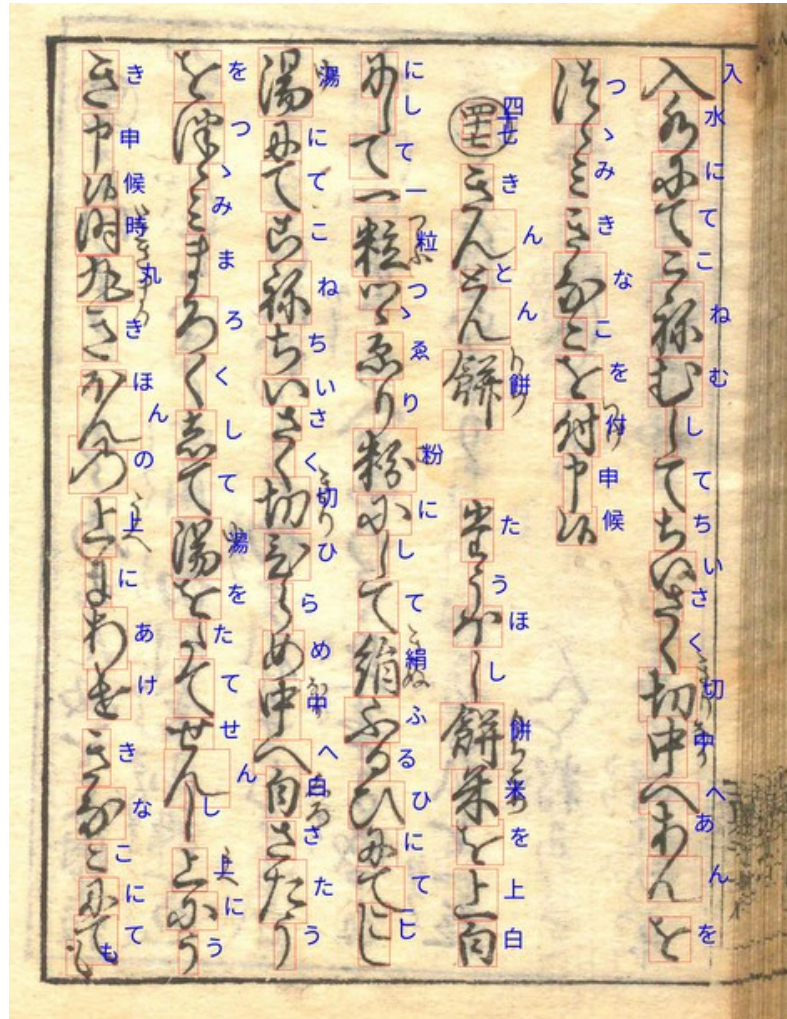 入水にてこねむしてちいさく切中へあんを
つゝみきなこを付申候
四十七 きんとん餅 たうほし餅米を上白
にして一粒つゝゑり粉にして絹ふるひにてこし
湯にてこねちいさく切ひらめ中へ白さたう
をつゝみまろくして湯をたてせんし上にう
き申候時丸きほんの上にあけきなこにても